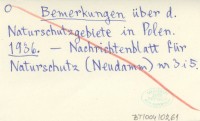 Bemerkungen über d.
Naturschutzgebiete in Polen.
1936. — Nachrichtenblatt für
Naturschutz (Neudamm) nr 3 i 5.
BT/004108,61